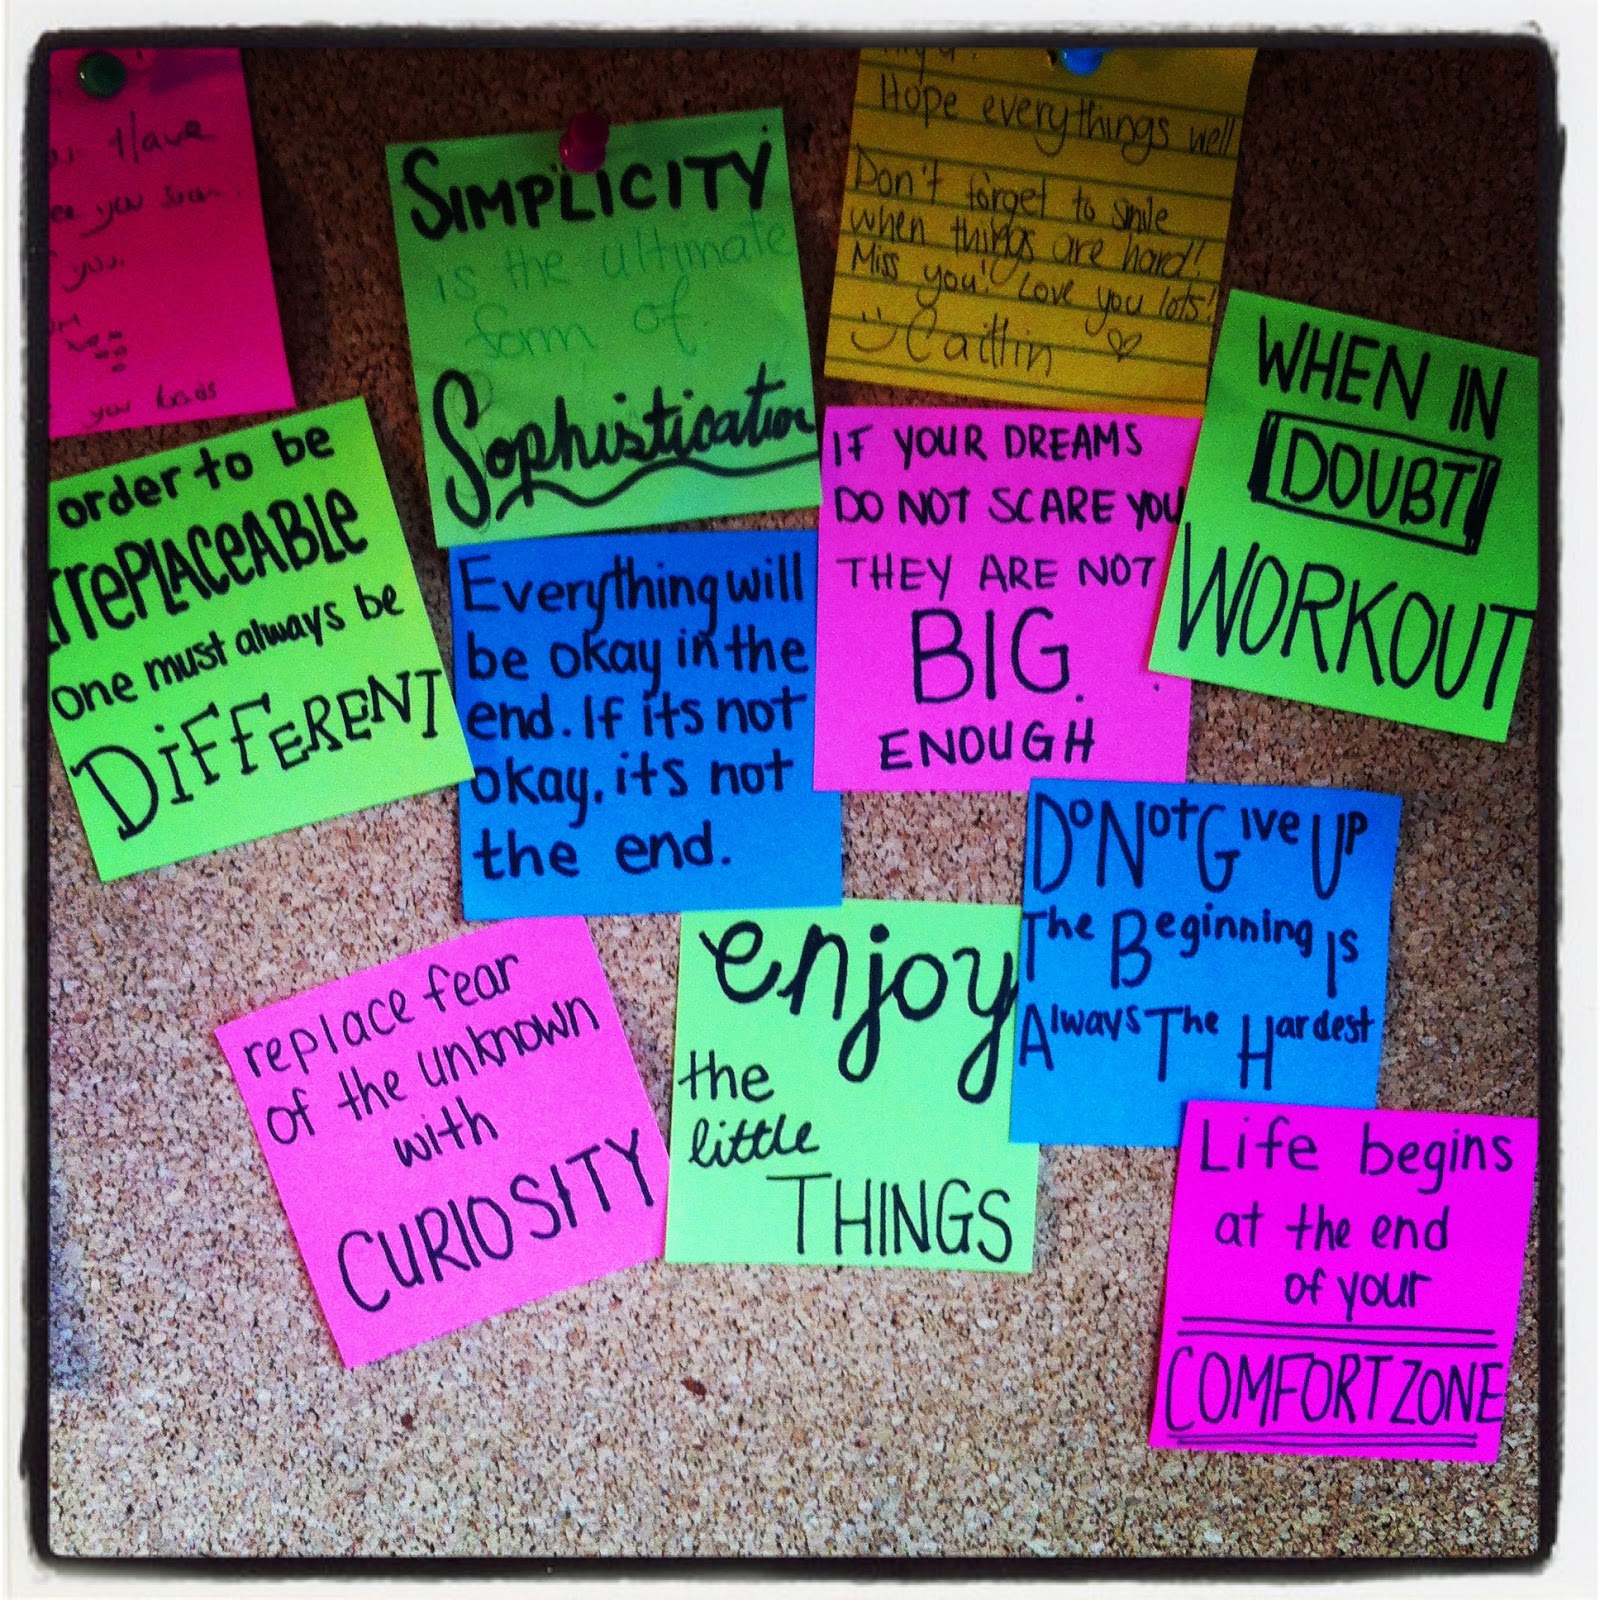 Have
you soon.
you.
you
SIMPLICITY
is the ultimate
form of
Sophistication
Hope everythings well
Don't forget to smile
when things are hard!
Miss you! Love you lots!
Caitlin
WHEN IN
DOUBT
WORKOUT
order to be
IrrePLACeABLe
one must always be
DiFFERENT
Everything will
be okay in the
end. If its not
okay, its not
the end.
IF YOUR DREAMS
DO NOT SCARE YOU
THEY ARE NOT
BIG
ENOUGH
Do Not Give Up
The Beginning Is
Always The Hardest
replace fear
of the unknown
with
CURIOSITY
enjoy
the
little
THINGS
Life begins
at the end
of your
COMFORT ZONE